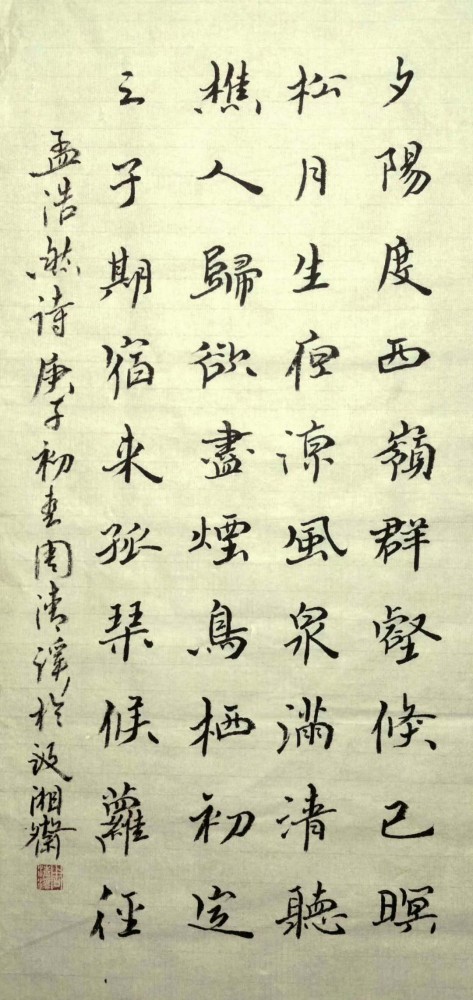 夕陽度西嶺群壑倏已暝
松月生夜涼風泉滿清聽
樵人歸欲盡煙鳥栖初定
之子期宿来孤琴候蘿徑
孟浩然诗庚子初春周清於湘齋